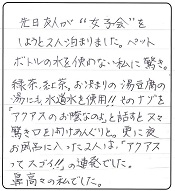 先日友人が“女子会”を
しようと2人泊まりました。ペット
ボトルの水を使わない私に驚き。
緑茶、紅茶、お決まりの湯豆腐の
湯にも水道水を使用!!そのナゾを
「アクアスのお陰なのよ」と話すとヌマ
驚き口を開けめんぐりと。更に夜
お風呂に入った2人は、「アクアス
ってスゴイ!!」の連発でした。
最高々の私でした。